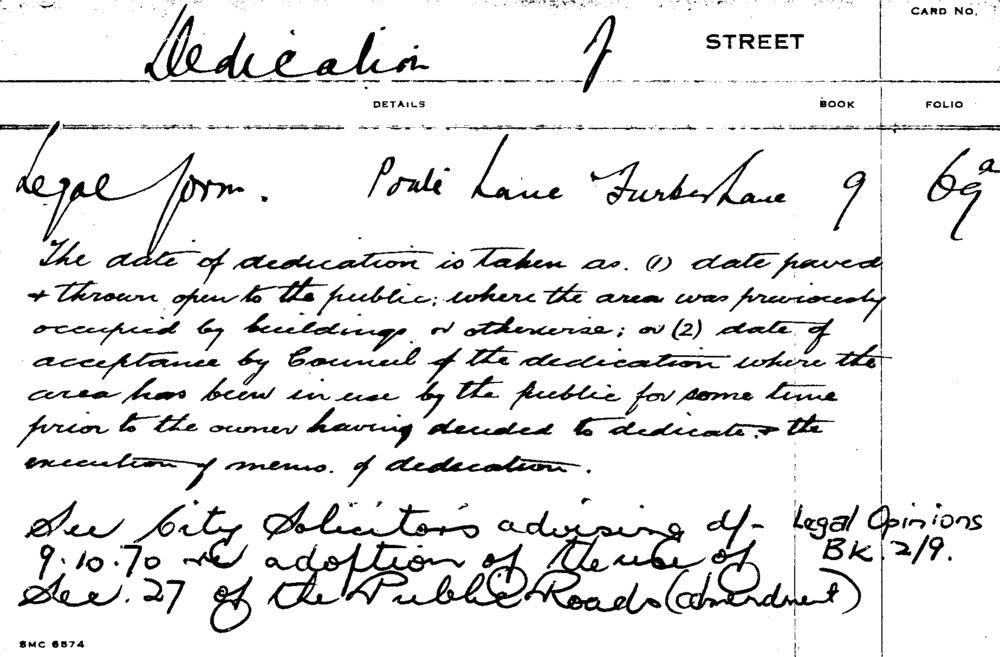 CARD NO.
Dedication of STREET
DETAILS BOOK FOLIO
Legal form. Lane Furber Lane 9 69a
The date of dedication is taken as. (1) date paved
& thrown open to the public; where the area was previously
occupied by buildings or otherwise; or (2) date of
acceptance by Council of the dedication where the
area has been in use by the public for some time
prior to the owner having decided to dedicate & the
execution of memo. of dedication.
See City Solicitor's advising d/- Legal Opinions
9.10.70 re adoption of the use of BK. 2/9.
Sec. 27 of the Public Roads (Amendment)
SMC 6574